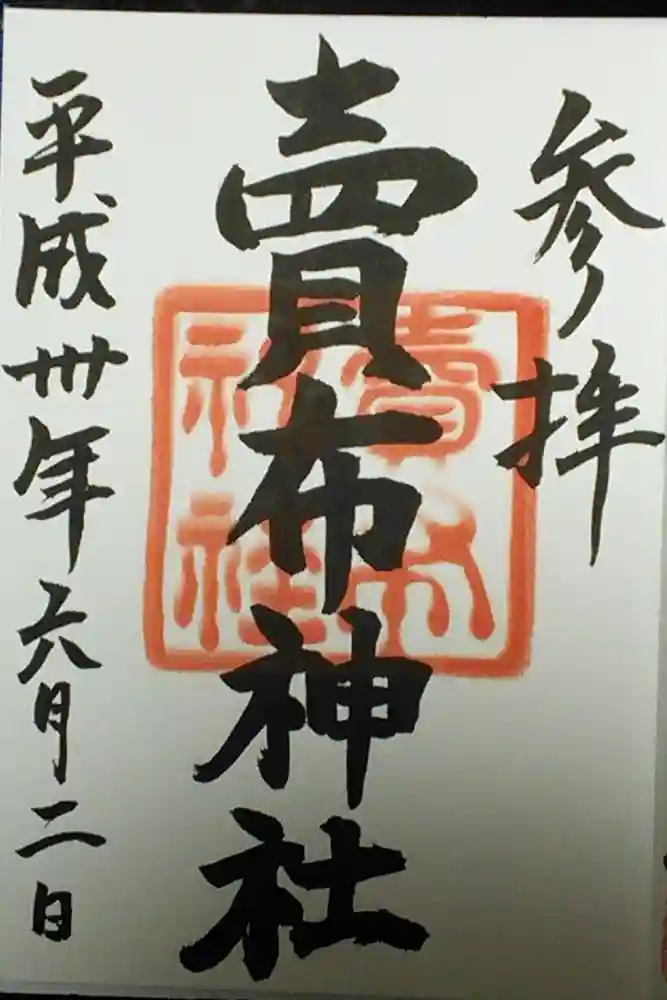 参拝
賣布神社
賣布神社
平成卅年六月二日